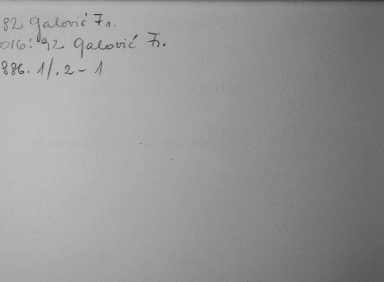 82 Galović Fr.
016:92 Galović F.
886.1/.2-1